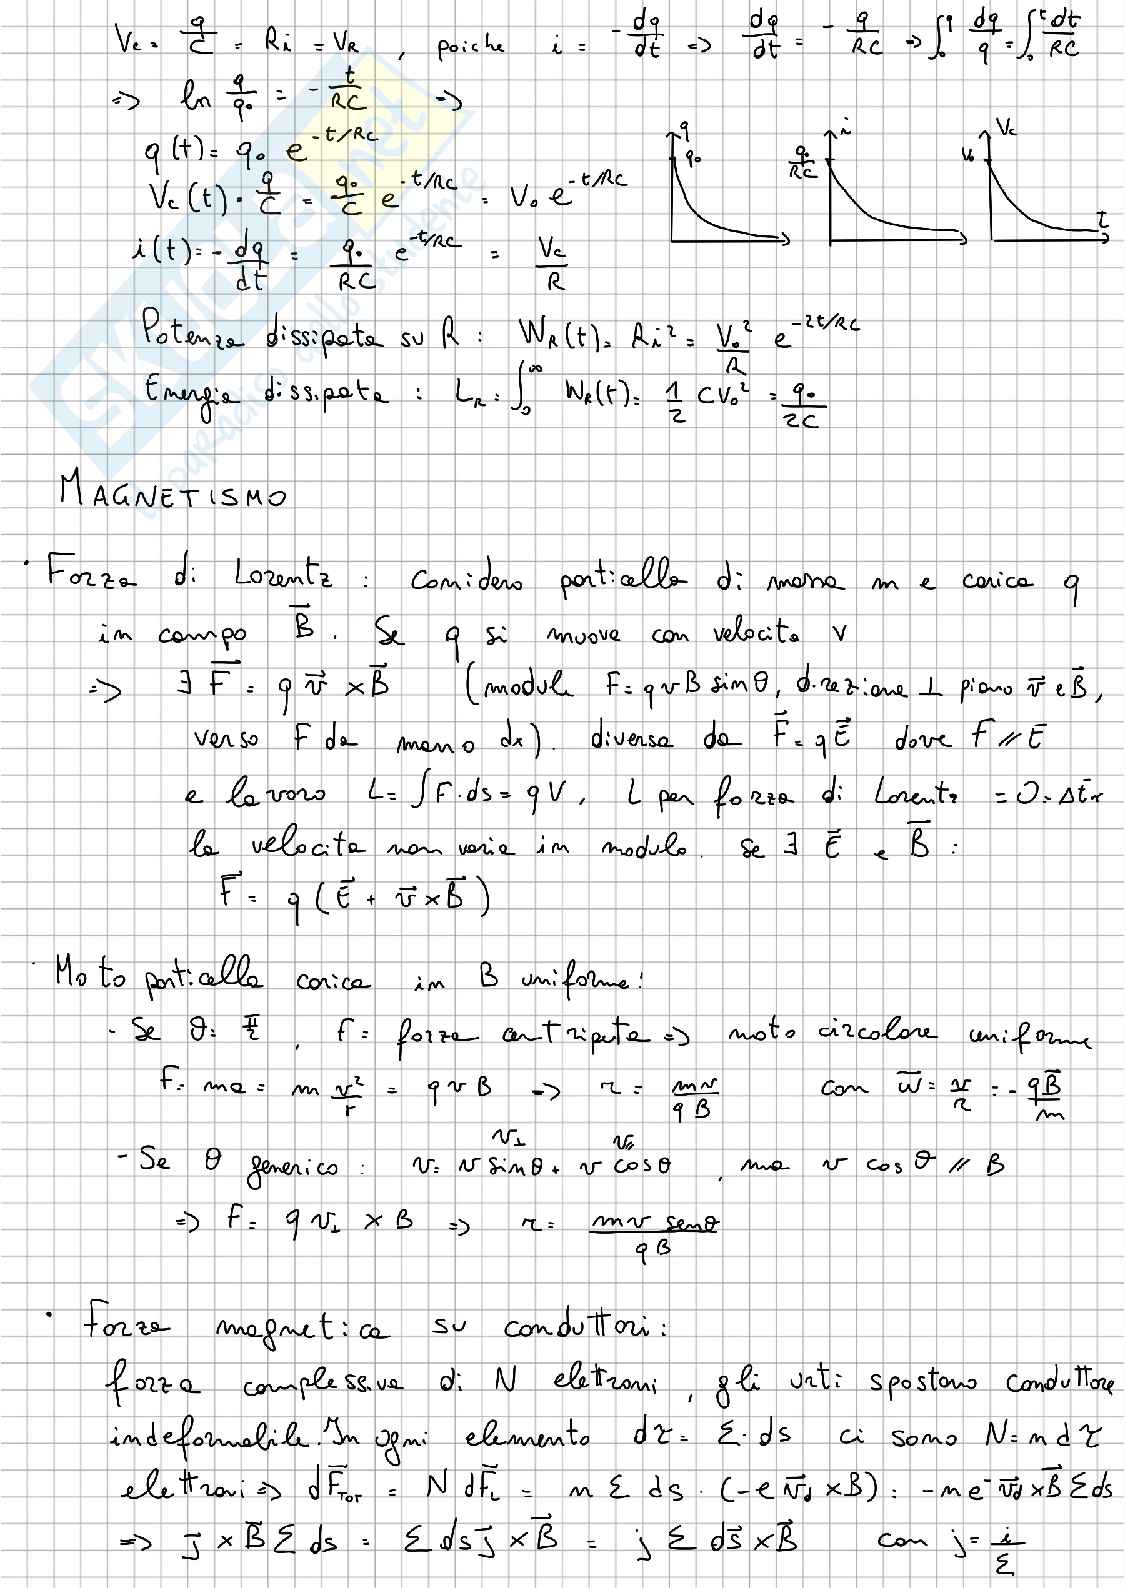 Vc = q/C = Ri = VR , poiche i = -dq/dt => dq/dt = -q/RC => ∫₀^q dq/q = ∫₀^t dt/RC
=> ln q/q₀ = -t/RC =>
q(t) = q₀ e^(-t/RC)
Vc(t) = q/C = q₀/C e^(-t/RC) = V₀ e^(-t/RC)
i(t) = -dq/dt = q₀/RC e^(-t/RC) = Vc/R
q
q₀
i
q₀/RC
Vc
V₀
t
Potenza dissipata su R : WR(t) = Ri² = V₀²/R e^(-2t/RC)
Energia dissipata : LR = ∫₀^∞ WR(t) = 1/2 CV₀² = q₀/2C
MAGNETISMO
· Forza di Lorentz : Considero particella di massa m e carica q
in campo B⃗. Se q si muove con velocita v
=> ∃ F⃗ = q v⃗ × B⃗ (modulo F = qvB sinθ, direzione ⊥ piano v⃗ e B⃗,
verso F da mano dx). diversa da F⃗ = qE⃗ dove F // E
e lavoro L = ∫F·ds = qV, L per forza di Lorentz = 0 = ΔEk
la velocita non varia in modulo. se ∃ E⃗ e B⃗ :
F⃗ = q (E⃗ + v⃗ × B⃗)
· Moto particella carica in B uniforme:
- Se θ = π/2, F = forza centripeta => moto circolare uniforme
F = ma = m v²/r = qvB => r = mv/qB con ω⃗ = v/r = -qB⃗/m
- Se θ generico : v = v sinθ + v cosθ, ma v cosθ // B
v⊥ v//
=> F = q v⊥ × B => r = mv senθ/qB
· Forza magnetica su conduttori :
forza complessiva di N elettroni, gli urti spostano conduttore
indeformabile. In ogni elemento dτ = Σ·ds ci sono N = n dτ
elettroni => dF⃗TOT = N dF⃗L = n Σ ds · (-e v⃗d × B) = -n e⁻ v⃗d × B⃗ Σ ds
=> j⃗ × B⃗ Σ ds = Σ ds j⃗ × B⃗ = j Σ ds⃗ × B⃗ con j = i/Σ